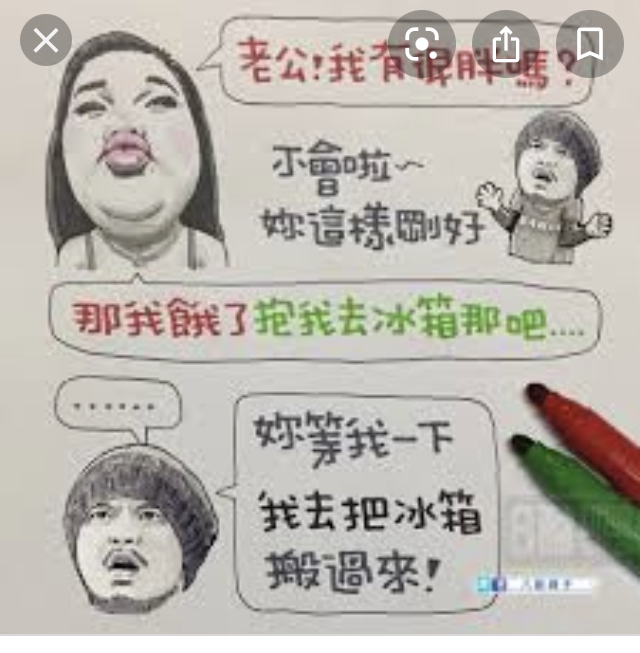 老公!我有很胖嗎?
不會啦~
妳這樣剛好
那我餓了抱我去冰箱那吧....
......
妳等我一下
我去把冰箱
搬過來!